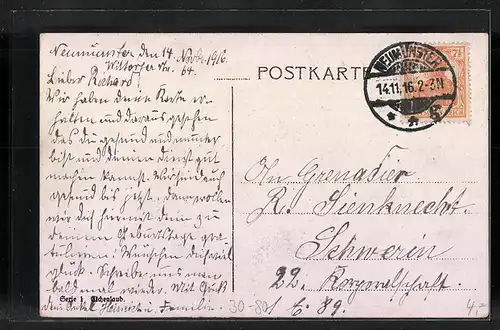 Neumünster den 14 Novbr. 1916.
Wittorfer str. 64.
Lieber Richard!
Wir haben deine Karte er-
halten und daraus gesehen
das du gesund und munter
bist und deinen Dienst gut
machen kannst. Wir sind auch
gesund bis jetzt, dann wollen
wir dich hiermit dein zu
deinem Geburtstage gra-
tulieren. Wünschen dir viel
glück. Schreibe uns man
bald mal wieder. Mit Gruß
dein Onkel Heinrich u. Familie.
Serie 1. Eichenlaub.
POSTKARTE
NEUMÜNSTER
14.11.16. 2-3N
7½
An Grenadier
R. Sienknecht.
Schwerin
22. Korporalschaft.
30-80
E. 89.
4.-